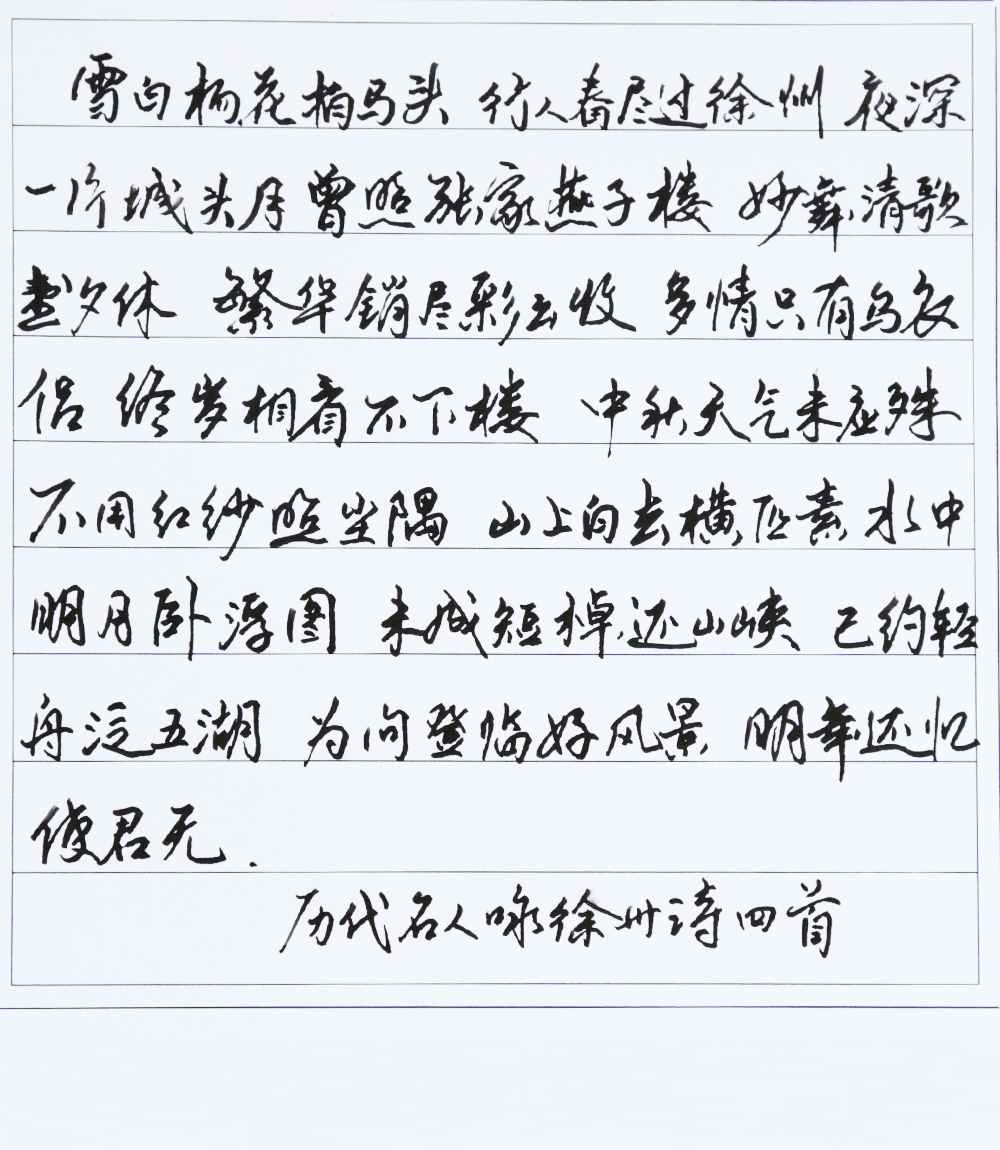 雪白杨花拍马头 行人春尽过徐州 夜深
一片城头月曾照张家燕子楼 妙舞清歌
夕休 繁华销尽彩云收 多情只有乌衣
侣 终岁相看不下楼 中秋天气未应殊
不用红纱照坐隅 山上白云横匹素 水中
明月卧浮图 未成短棹还山峡 已约轻
舟泛五湖 为问登临好风景 明年还忆
使君无.
历代名人咏徐州诗四首